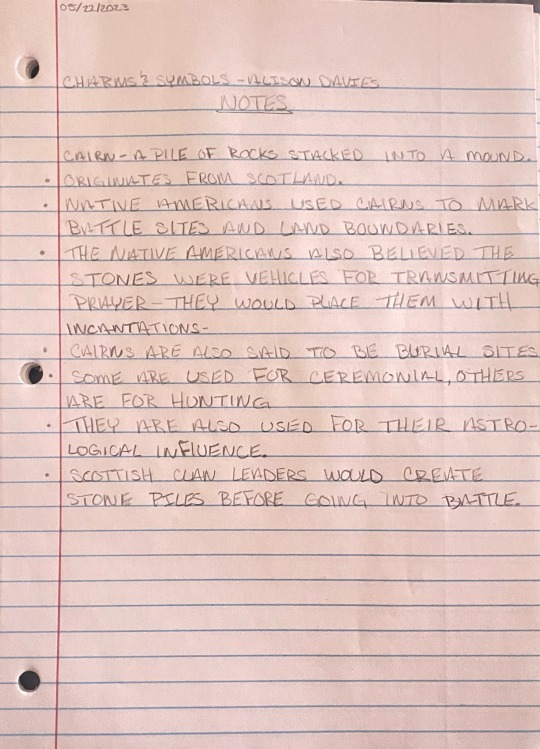 05/22/2023
CHARMS & SYMBOLS - ALISON DAVIES
NOTES
CAIRN - A PILE OF ROCKS STACKED INTO A MOUND.
• ORIGINATES FROM SCOTLAND.
• NATIVE AMERICANS USED CAIRNS TO MARK
BATTLE SITES AND LAND BOUNDARIES.
• THE NATIVE AMERICANS ALSO BELIEVED THE
STONES WERE VEHICLES FOR TRANSMITTING
PRAYER - THEY WOULD PLACE THEM WITH
INCANTATIONS -
• CAIRNS ARE ALSO SAID TO BE BURIAL SITES
• SOME ARE USED FOR CEREMONIAL, OTHERS
ARE FOR HUNTING
• THEY ARE ALSO USED FOR THEIR ASTRO-
LOGICAL INFLUENCE.
• SCOTTISH CLAN LEADERS WOULD CREATE
STONE PILES BEFORE GOING INTO BATTLE.